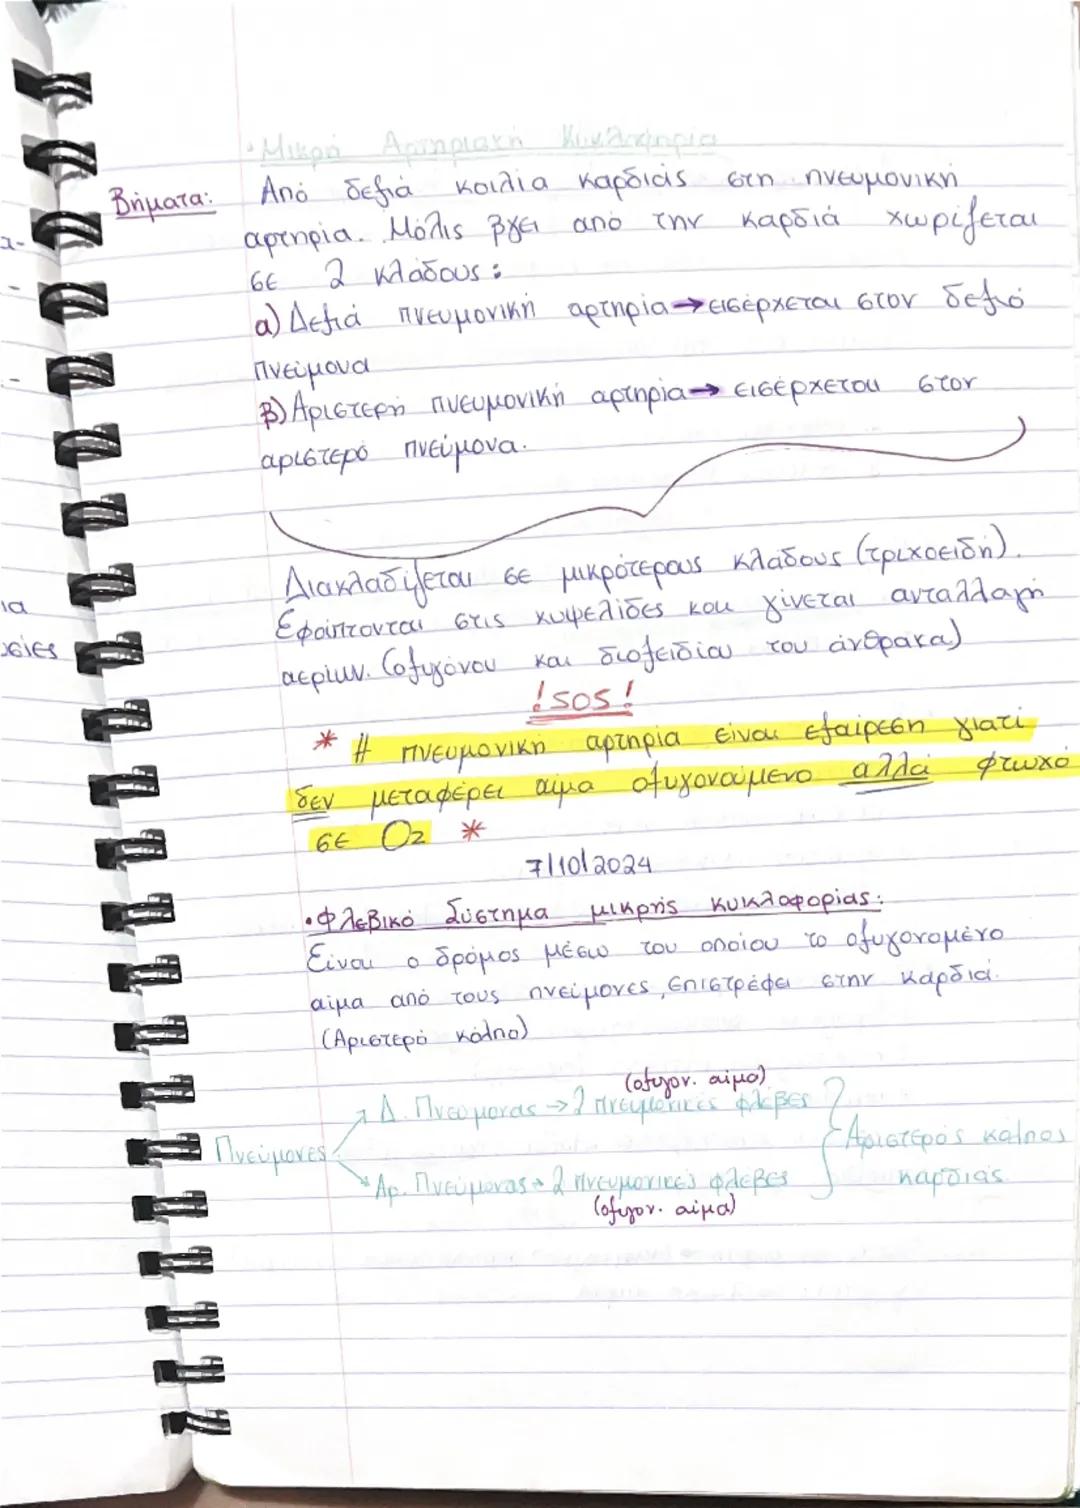 • Μικρή Αρτηριακή Κυκλοφορία
Βήματα: Από δεξιά κοιλία καρδιάς στη πνευμονική
αρτηρία. Μόλις βγει από την καρδιά χωρίζεται
σε 2 κλάδους:
α) Δεξιά πνευμονική αρτηρία → εισέρχεται στον δεξιό
πνεύμονα
β) Αριστερή πνευμονική αρτηρία → εισέρχεται στον
αριστερό πνεύμονα.
Διακλαδίζεται σε μικρότερους κλάδους (τριχοειδή).
Εφάπτονται στις κυψελίδες και γίνεται ανταλλαγή
αερίων. (οξυγόνου και διοξειδίου του άνθρακα)
! SOS !
* Η πνευμονική αρτηρία είναι εξαίρεση γιατί
δεν μεταφέρει αίμα οξυγονούμενο αλλά φτωχό
σε O2 *
7/10/2024
• Φλεβικό Σύστημα μικρής κυκλοφορίας:
Είναι ο δρόμος μέσω του οποίου το οξυγονομένο
αίμα από τους πνεύμονες, επιστρέφει στην καρδιά.
(Αριστερό κόλπο)
(οξυγον. αίμα)
Δ. Πνεύμονας → 2 πνευμονικές φλέβες
Πνεύμονες
Αριστερός κόλπος
καρδιάς
Αρ. Πνεύμονας → 2 πνευμονικές φλέβες
(οξυγον. αίμα)
ια